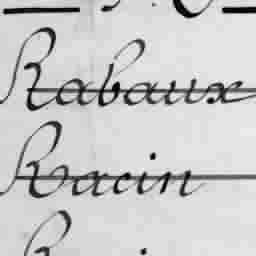 Rabaux
Racin